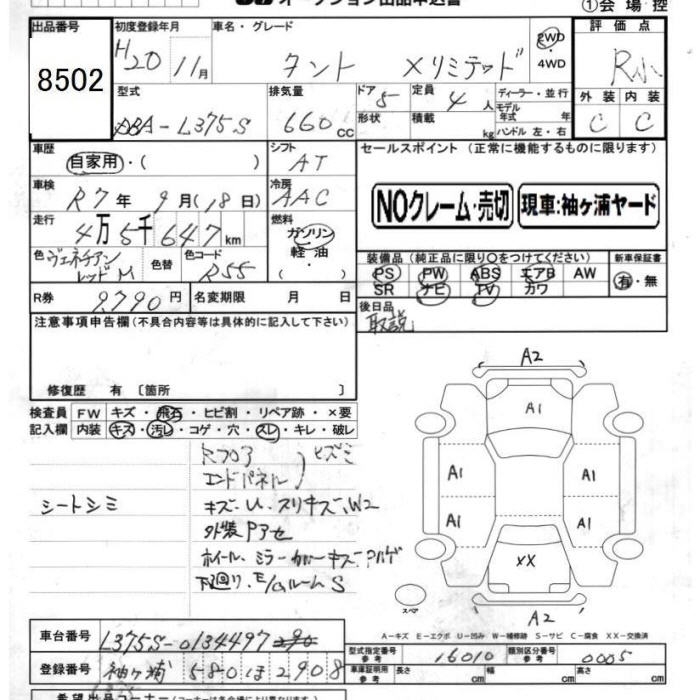 ①会場控
出品番号 8502
初度登録年月 H20 11月
車名・グレード タント Xリミテッド
2WD
・4WD
評価点 R小
型式 DBA-L375S
排気量 660CC
ドア 5
形状
定員 4人
積載 kg
ディーラー・並行
モデル年式 年
ハンドル 左・右
外装 内装
C C
車歴 自家用・( )
シフト AT
セールスポイント (正常に機能するものに限ります)
車検 R7年9月(18日)
冷房 AAC
NOクレーム・売切 現車:袖ヶ浦ヤード
走行 4万5千647km
燃料 ガソリン
軽油
・( )
色 ヴェネチアンレッドM
色替
色コード R55
装備品(純正品に限り○をつけてください)
新車保証書
PS PW ABS エアB AW
SR ナビ TV カワ
有・無
R券 9,790円
名変期限 月 日
後日品
取説
注意事項申告欄(不具合内容等は具体的に記入して下さい)
修復歴 有 〔箇所 〕
検査員 FW キズ・飛石・ヒビ割・リペア跡・×要
記入欄 内装 キズ・汚レ・コゲ・穴・スレ・キレ・破レ
Rフロア
エンドパネル)ヒズミ
シートシミ
キズ・U、スリキズ、W2
外装Pアセ
ホイール、ミラーカバーキズPハゲ
下廻り、E/Gルーム S
A2
A1
A1 A1
A1 A1
XX
スペア
A2
A-キズ E-エクボ U-凹み W-補修跡 S-サビ C-腐食 XX-交換済
車台番号 L375S-0134497
登録番号 袖ヶ浦 580 ほ 2908
型式指定番号 参考 16010
類別区分番号 参考 0005
車庫証明用 参考 長さ cm 幅 cm 高さ cm
希望出品コーナー